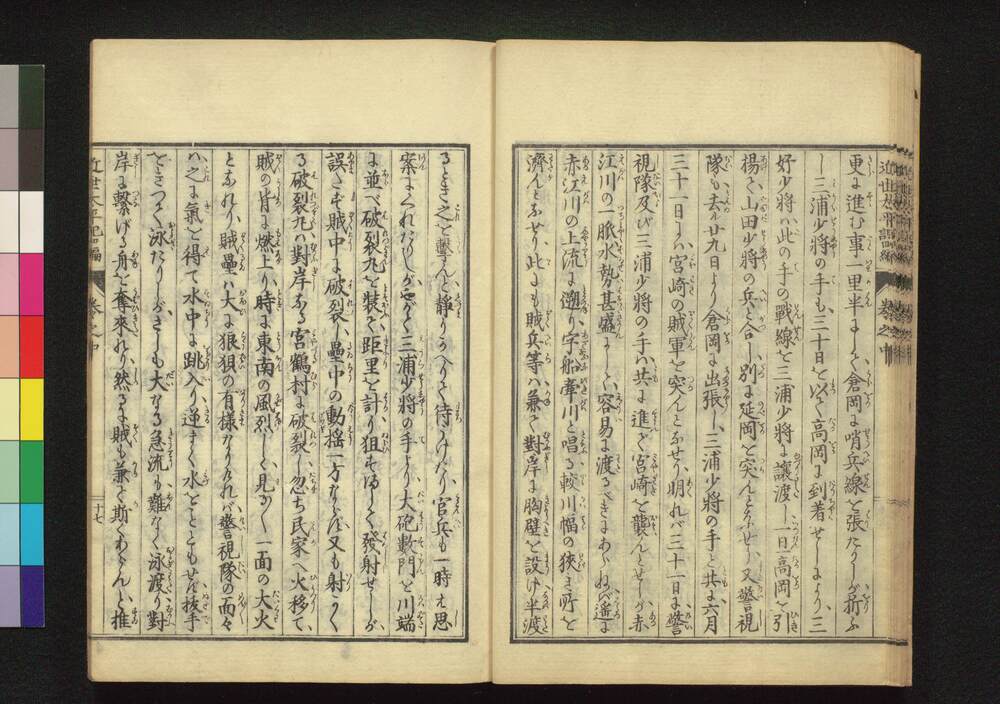 更に進む事一里半にして倉岡に哨兵線を張たりしが折ふ
し三浦少将の手も三十日を以て高岡に到着せしにより三
好少将ハ此の手の戰線を三浦少将に讓渡し一旦高岡を引
揚て山田少将の兵と合し別に延岡を突んとなせり又警視
隊も去ル廿九日より倉岡に出張し三浦少将の手と共に六月
三十一日にハ宮崎の賊軍を突んとなせり明れバ三十一日に警
視隊及び三浦少将の手ハ共に進で宮崎を襲んとせしが赤
江川の一脈水勢甚盛にして容易に渡るべきにあらねバ遙に
赤江川の上流に遡り字船牽川と唱る較川幅の狭き所を
濟んとなせり此にも賊兵等ハ兼て對岸に胸壁を設け半渡
るとき之を擊んと静りかへりて待うけたり官兵も一時ハ思
案にくれたりしがやがて三浦少将の手より大砲數門を川端
に並べ破裂丸を裝て距里を計り狙をさだめて發射せしが
誤たず賊中に破裂し壘中の動搖一方ならず又も射かく
る破裂丸ハ對岸なる宮鶴村に破裂し忽ち民家へ火移て
賊の背に燃上り時に東南の風烈しく見がく一面の大火
となれり賊壘ハ大に狼狽の有様なりけれバ警視隊の面々
ハ之に氣を得て水中に跳入り逆まく水をことともせず抜手
をきつて泳たりしがさしも大なる急流も難なく泳渡り對
岸に繋げる舟を奪來れり然るに賊も兼て斯くあらんと推
近世太平記編
巻之中
十七